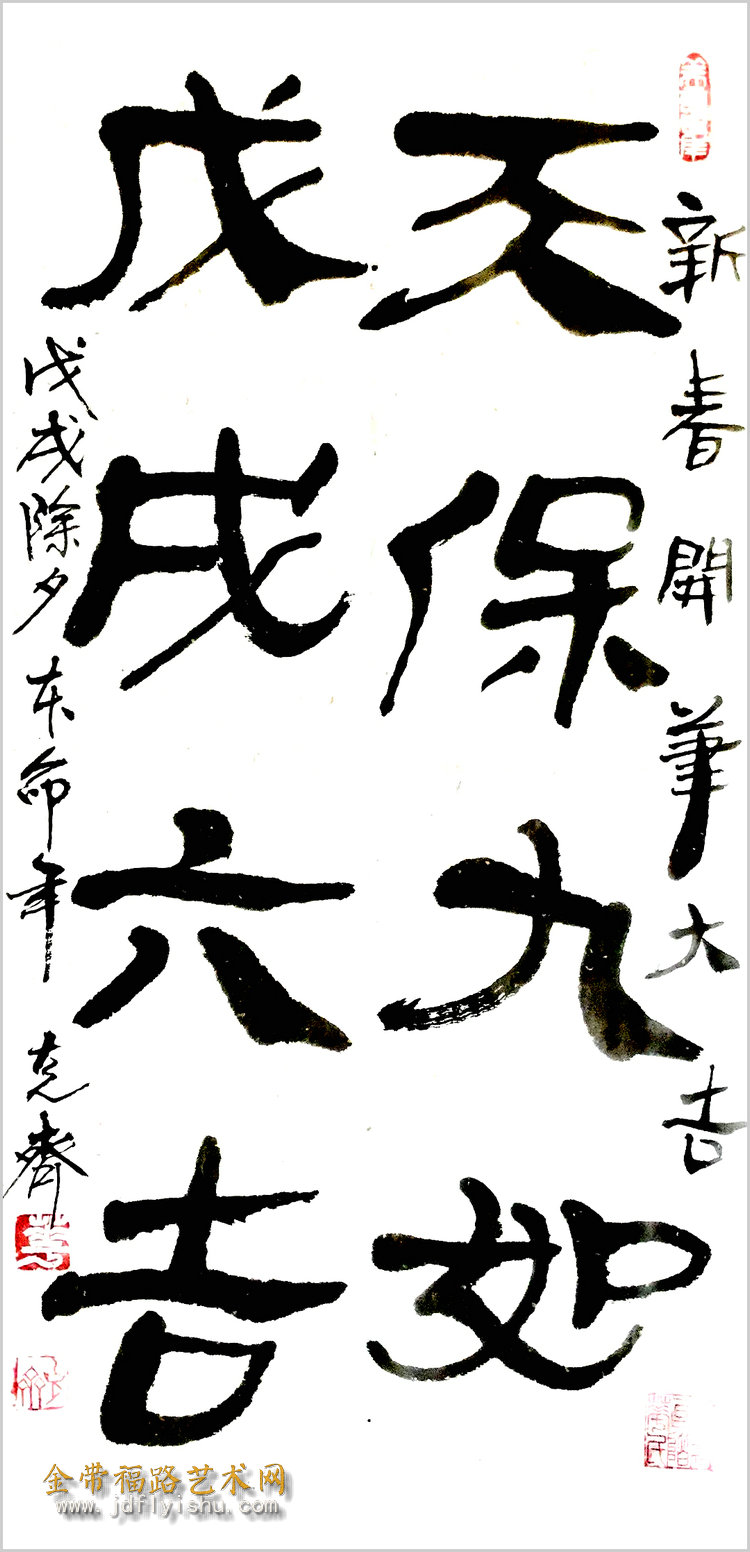 新春開筆大吉
天保九如
戊戌六吉
戊戌除夕本命年 克齊
金带福路艺术网
www.jdflyishu.com